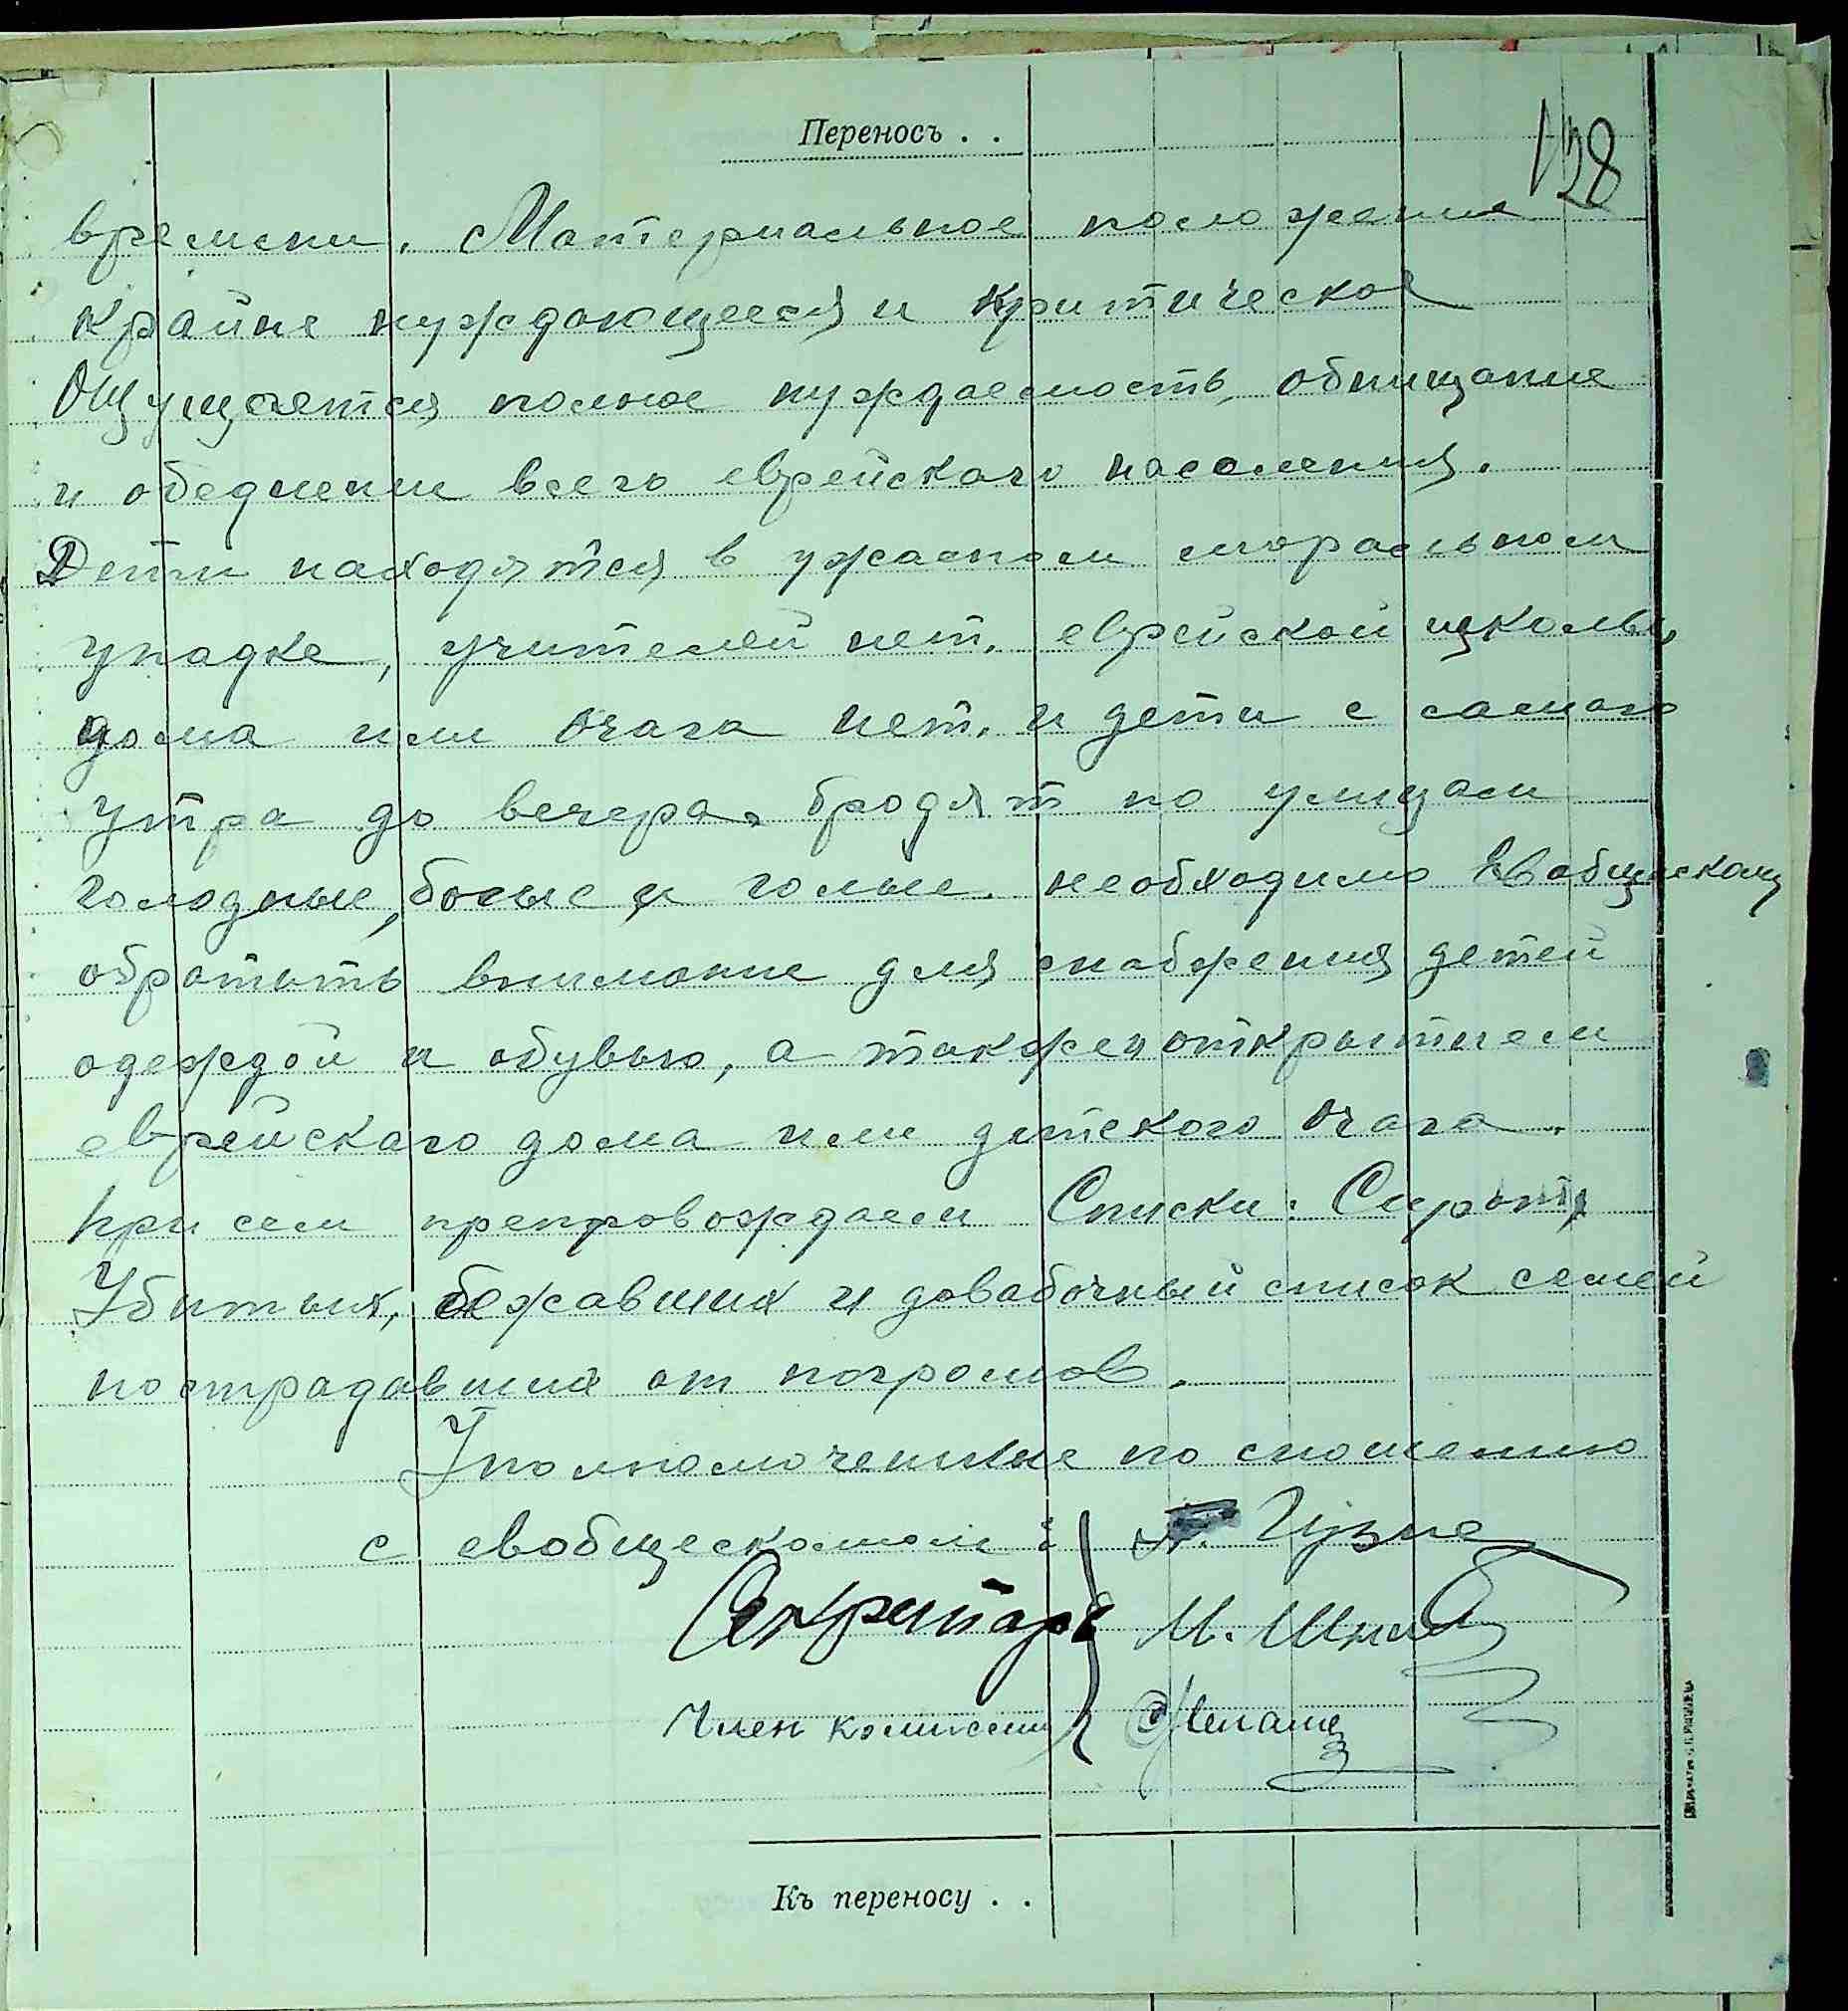 Переносъ . .
128
времени. Материальное положение
крайне нуждающееся и критическое
Ощущается полное нуждаемость, обнищание
и обеднении всего еврейскаго населения.
Дети находятся в ужасном моральном
упадке, учителей нет, еврейской школы,
дома или очага нет, и дети с самого
утра до вечера бродят по улицам
голодные, босые и голые. необходимо Евобщескому
обратить внимание для снабжения детей
одеждой и обувью, а также и открытием
еврейскаго дома или детского очага.
При сем препровождаем Списки: Сирот,
Убитых, бежавших и довабочный список семей
пострадавших от погромов.
Уполномоченные по сношению
с евобщескомом:
Секретарь М.
Член комиссии
Къ переносу . .